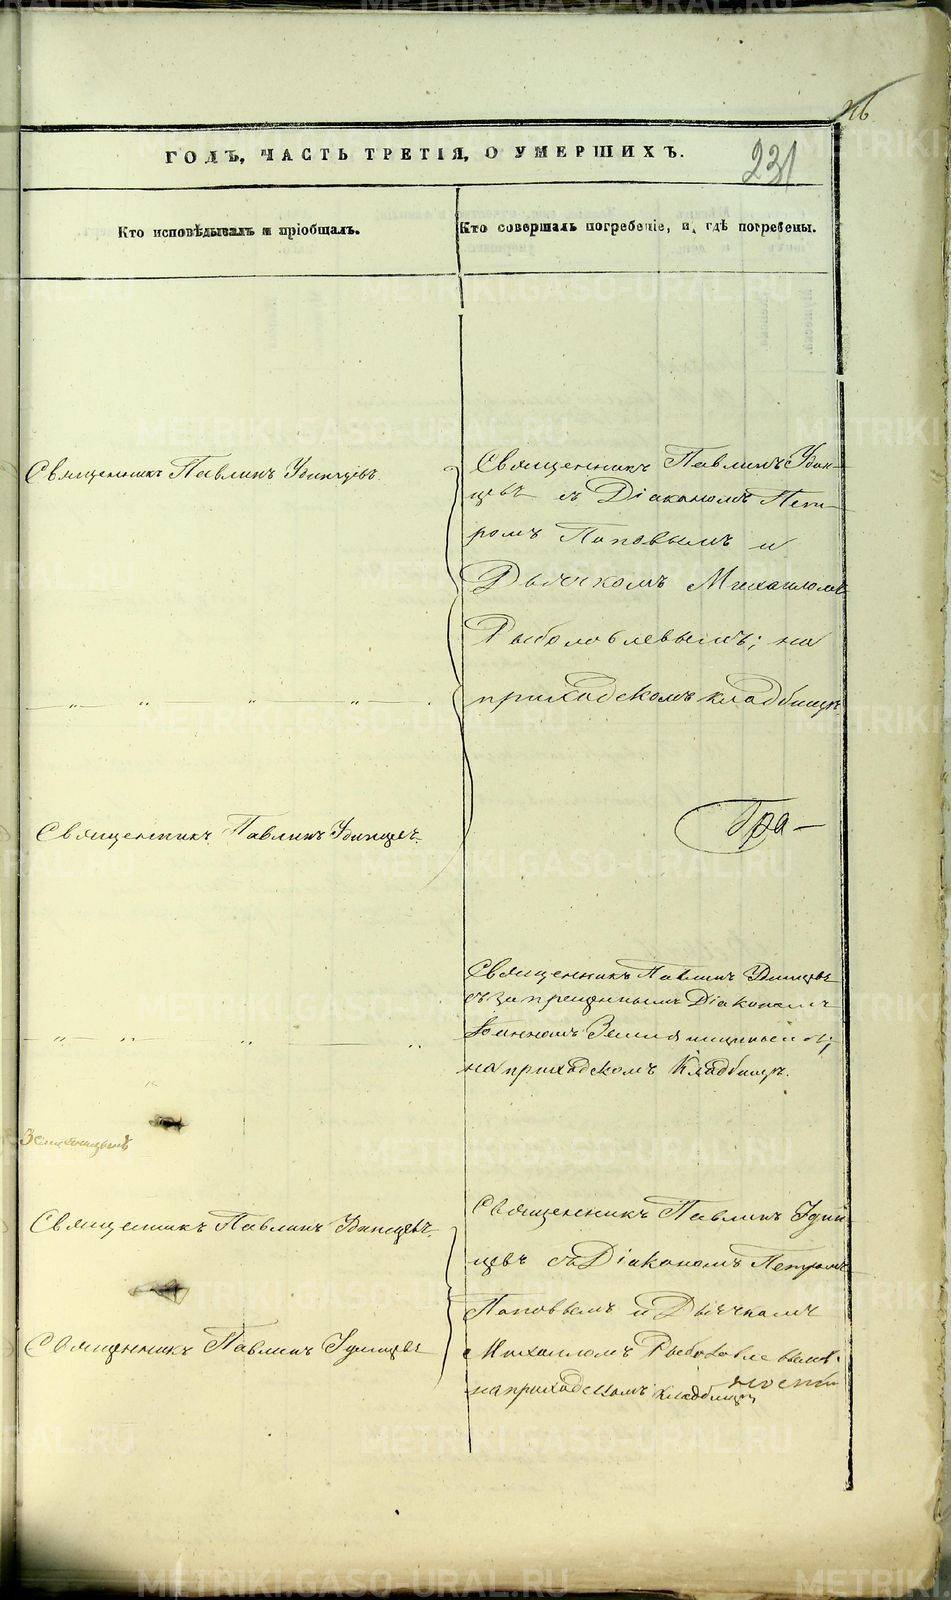 ГОДЪ, ЧАСТЬ ТРЕТІЯ, О УМЕРШИХЪ.
231
Кто исповѣдывалъ и пріобщалъ.
Кто совершалъ погребеніе, и гдѣ погребены.
Священникъ Павлинъ Удинцевъ.
Священникъ Павлинъ Удин-
цевъ съ Діакономъ Пет-
ромъ Поповымъ и
Дьячкомъ Михаиломъ
Рыболовлевымъ; на
приходскомъ кладбищѣ
Священникъ Павлинъ Удинцевъ.
Гра-
Священникъ Павлинъ Удинцевъ
съ запрещеннымъ Діакономъ
Іоанномъ
на приходскомъ Кладбищѣ.
Священникъ Павлинъ Удинцевъ.
Священникъ Павлинъ Удин-
цевъ съ Діакономъ Петромъ
Поповымъ и Дьячкомъ
Священникъ Павлинъ Удинцевъ
Михаиломъ Рыболовлевымъ.
на приходскомъ кладбищѣ
METRIKI.GASO-URAL.RU